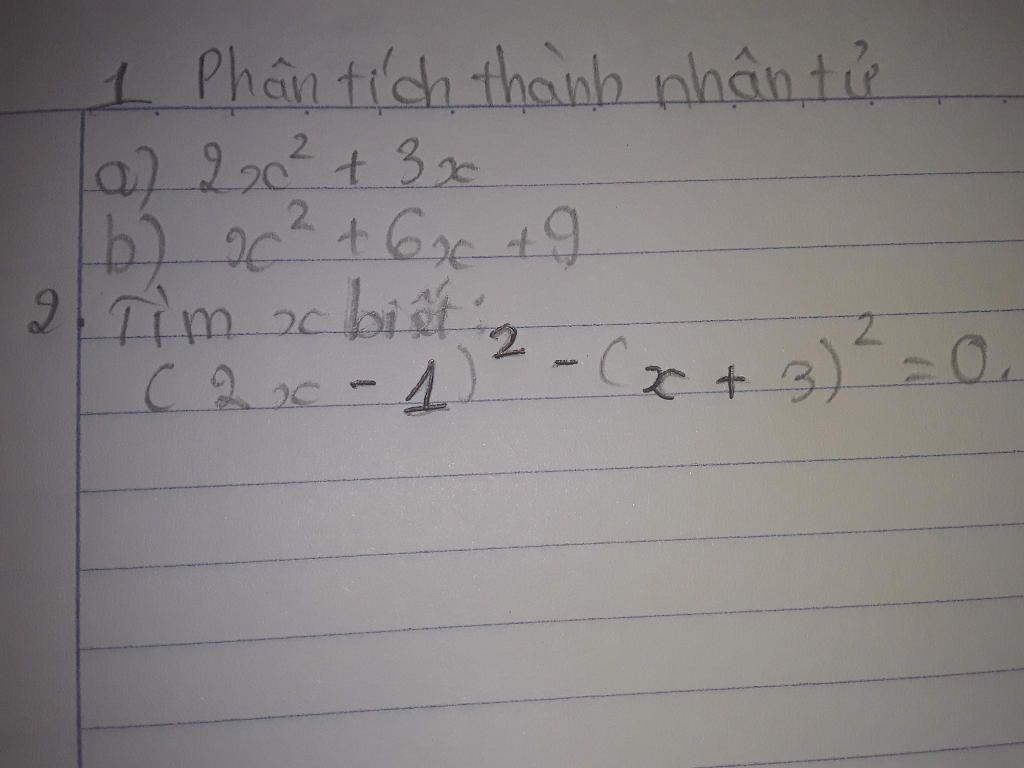 1 Phân tích thành nhân tử
a) 2x² + 3x
b) x² + 6x + 9
2. Tìm x biết:
(2x - 1)² - (x + 3)² = 0.